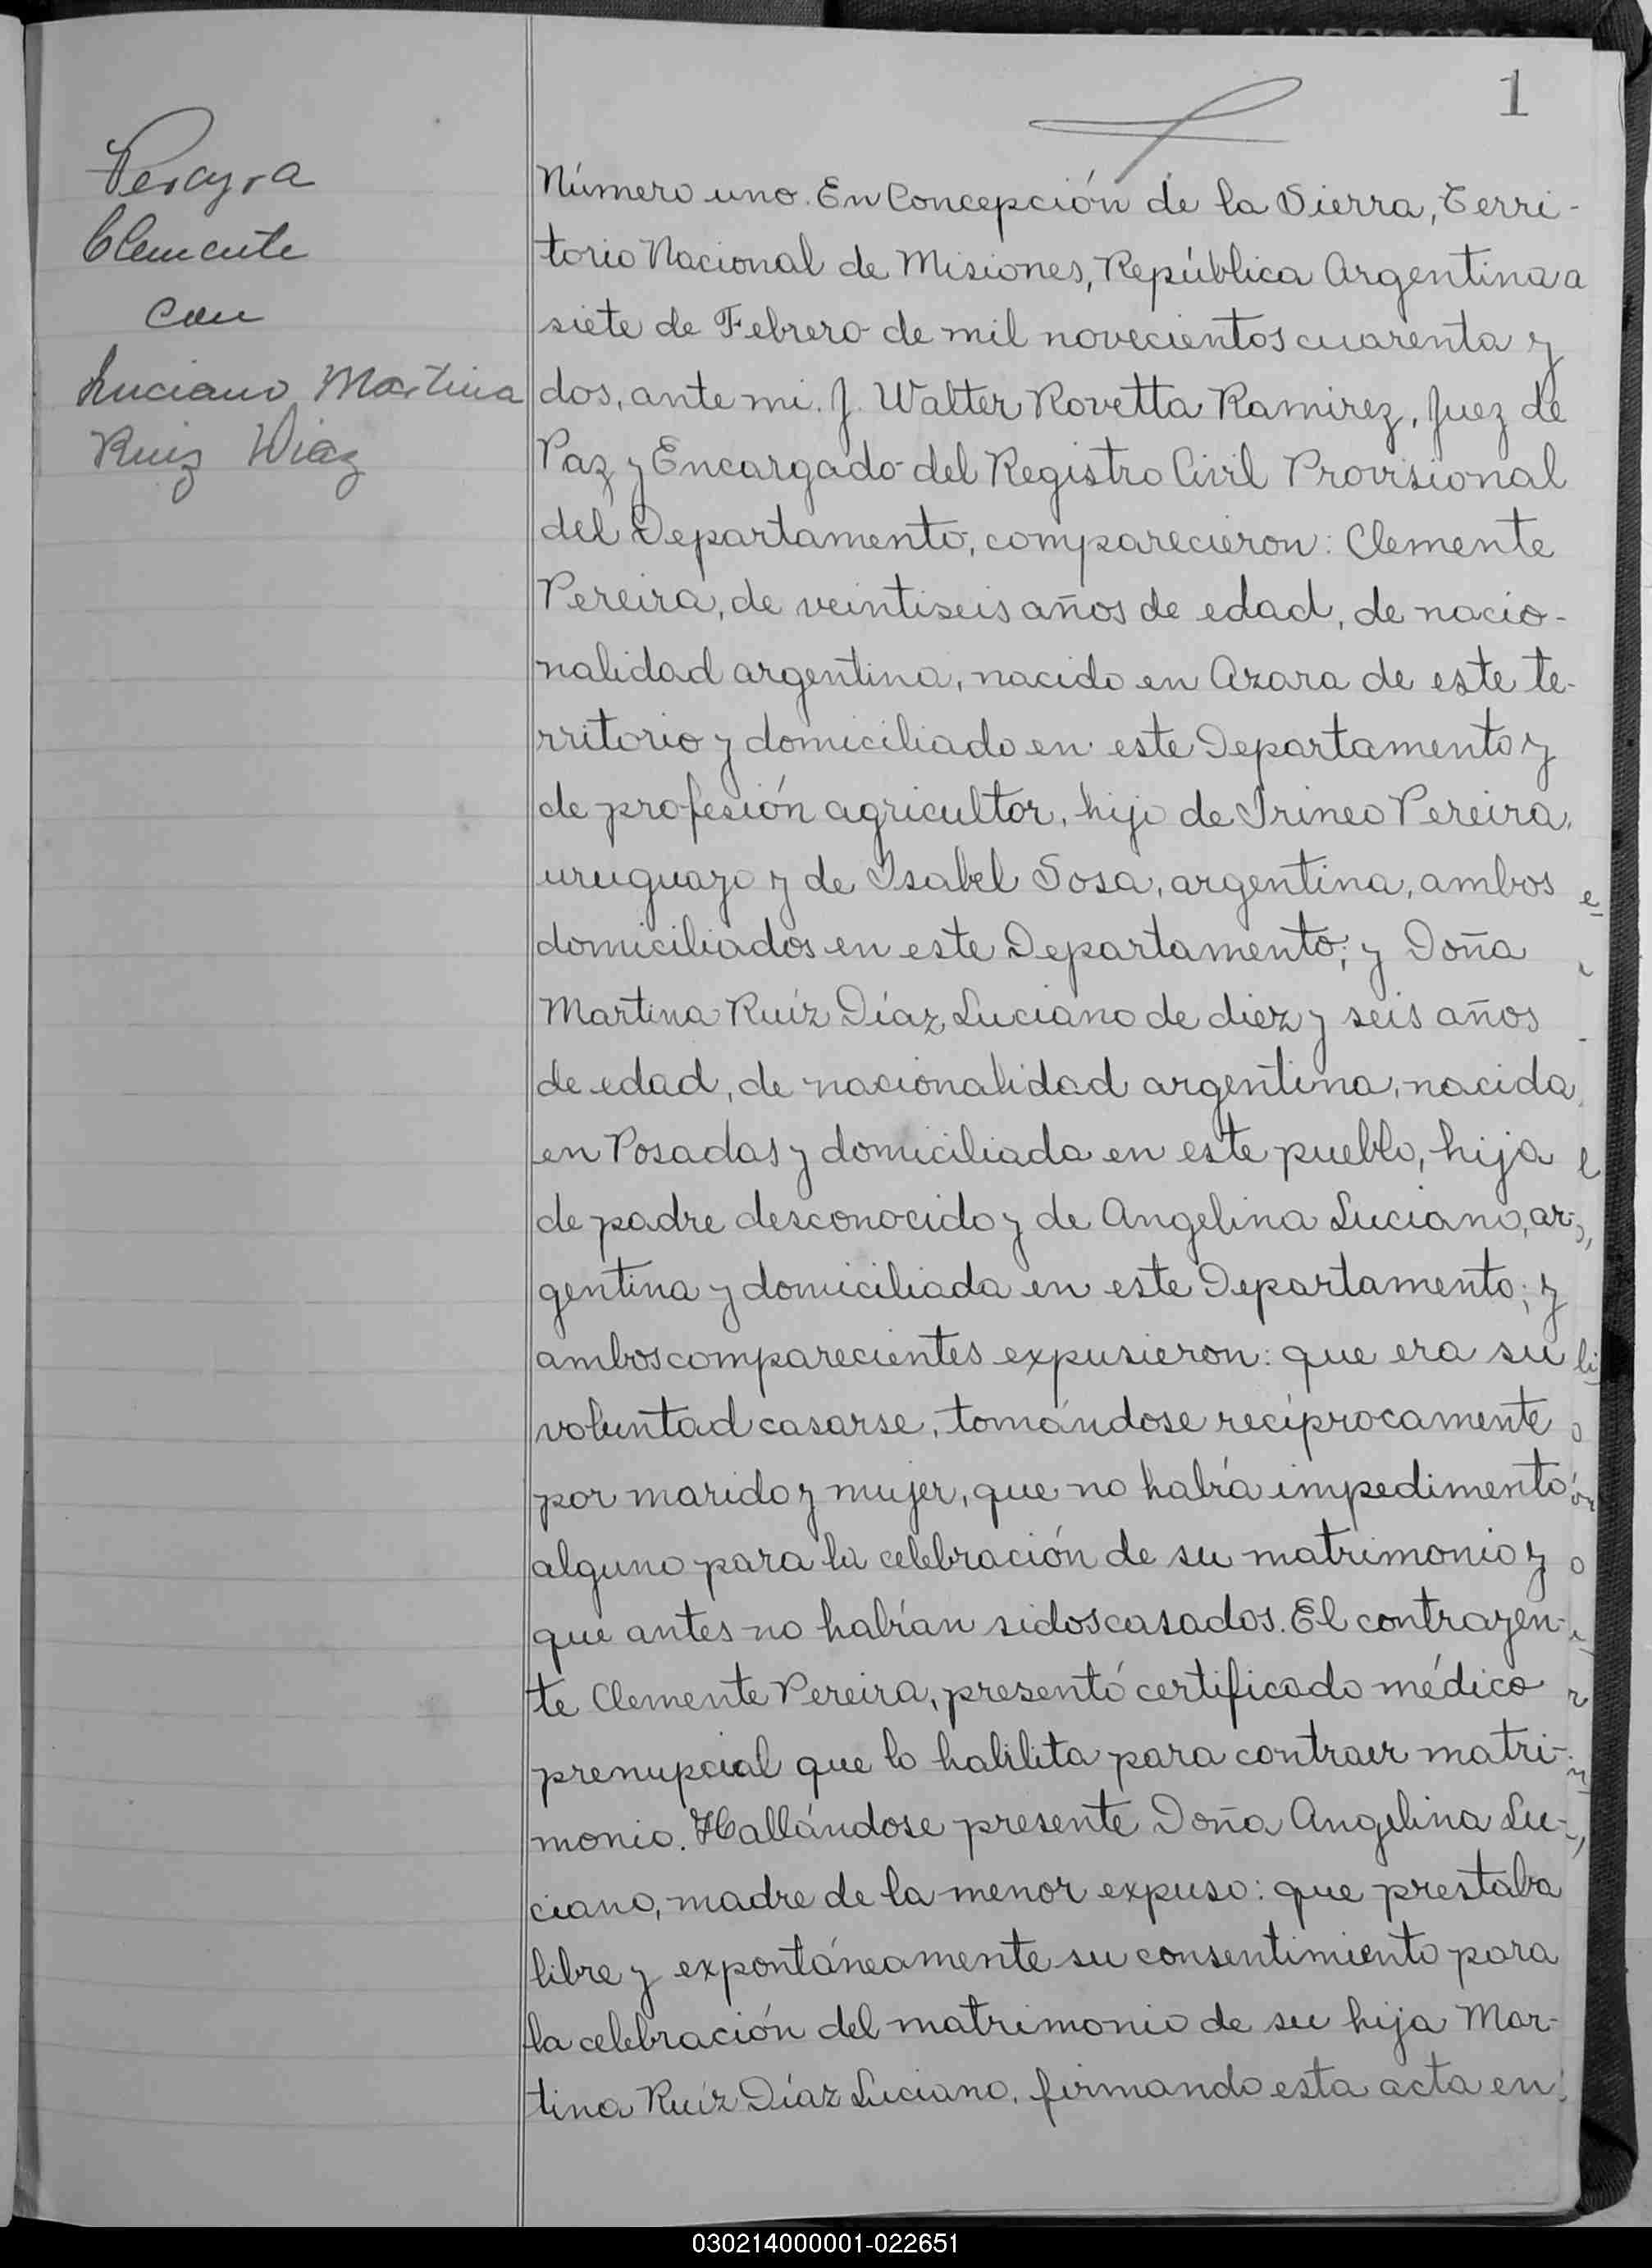 1
Pereyra
Clemente
con
Luciano Martina
Ruiz Diaz
Número uno. En Concepción de la Sierra, Terri-
torio Nacional de Misiones, República Argentina a
siete de Febrero de mil novecientos cuarenta y
dos, ante mi. J. Walter Rovetta Ramirez, Juez de
Paz y Encargado del Registro Civil Provisional
del Departamento, comparecieron: Clemente
Pereira, de veintiseis años de edad, de nacio-
nalidad argentina, nacido en Azara de este te-
rritorio y domiciliado en este Departamento y
de profesión agricultor, hijo de Irineo Pereira,
uruguayo y de Isabel Sosa, argentina, ambos
domiciliados en este Departamento; y Doña
Martina Ruíz Díaz Luciano de diez y seis años
de edad, de nacionalidad argentina, nacida
en Posadas y domiciliada en este pueblo, hija
de padre desconocido y de Angelina Luciano, ar-
gentina y domiciliada en este Departamento; y
ambos comparecientes expusieron: que era su
voluntad casarse, tomándose recíprocamente
por marido y mujer, que no había impedimento
alguno para la celebración de su matrimonio y
que antes no habían sidos casados. El contrayen-
te Clemente Pereira, presentó certificado médico
prenupcial que lo habilita para contraer matri-
monio. Hallándose presente Doña Angelina Lu-
ciano, madre de la menor expuso: que prestaba
libre y expontáneamente su consentimiento para
la celebración del matrimonio de su hija Mar-
tina Ruíz Díaz Luciano, firmando esta acta en
030214000001-022651